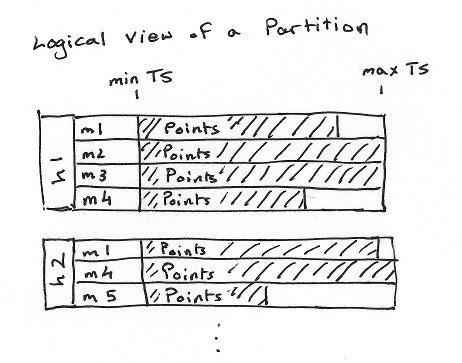 Logical view of a Partition
min TS max TS
h1
m1 Points
m2 Points
m3 Points
m4 Points
h2
m1 Points
m4 Points
m5 Points